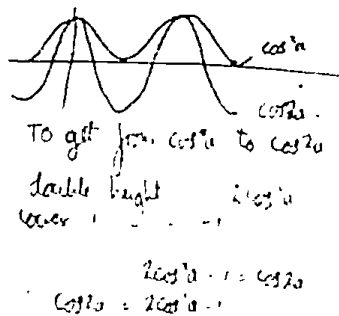 cos²a
cos2a
To get from cos²a to cos2a
double height 2cos²a
lower
2cos²a - 1 = cos2a
cos2a = 2cos²a - 1